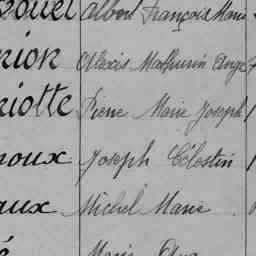 Albert François Marie
nion Alexis Mathurin Ange
riotte Pierre Marie Joseph
roux Joseph Célestin
aux Michel Marie